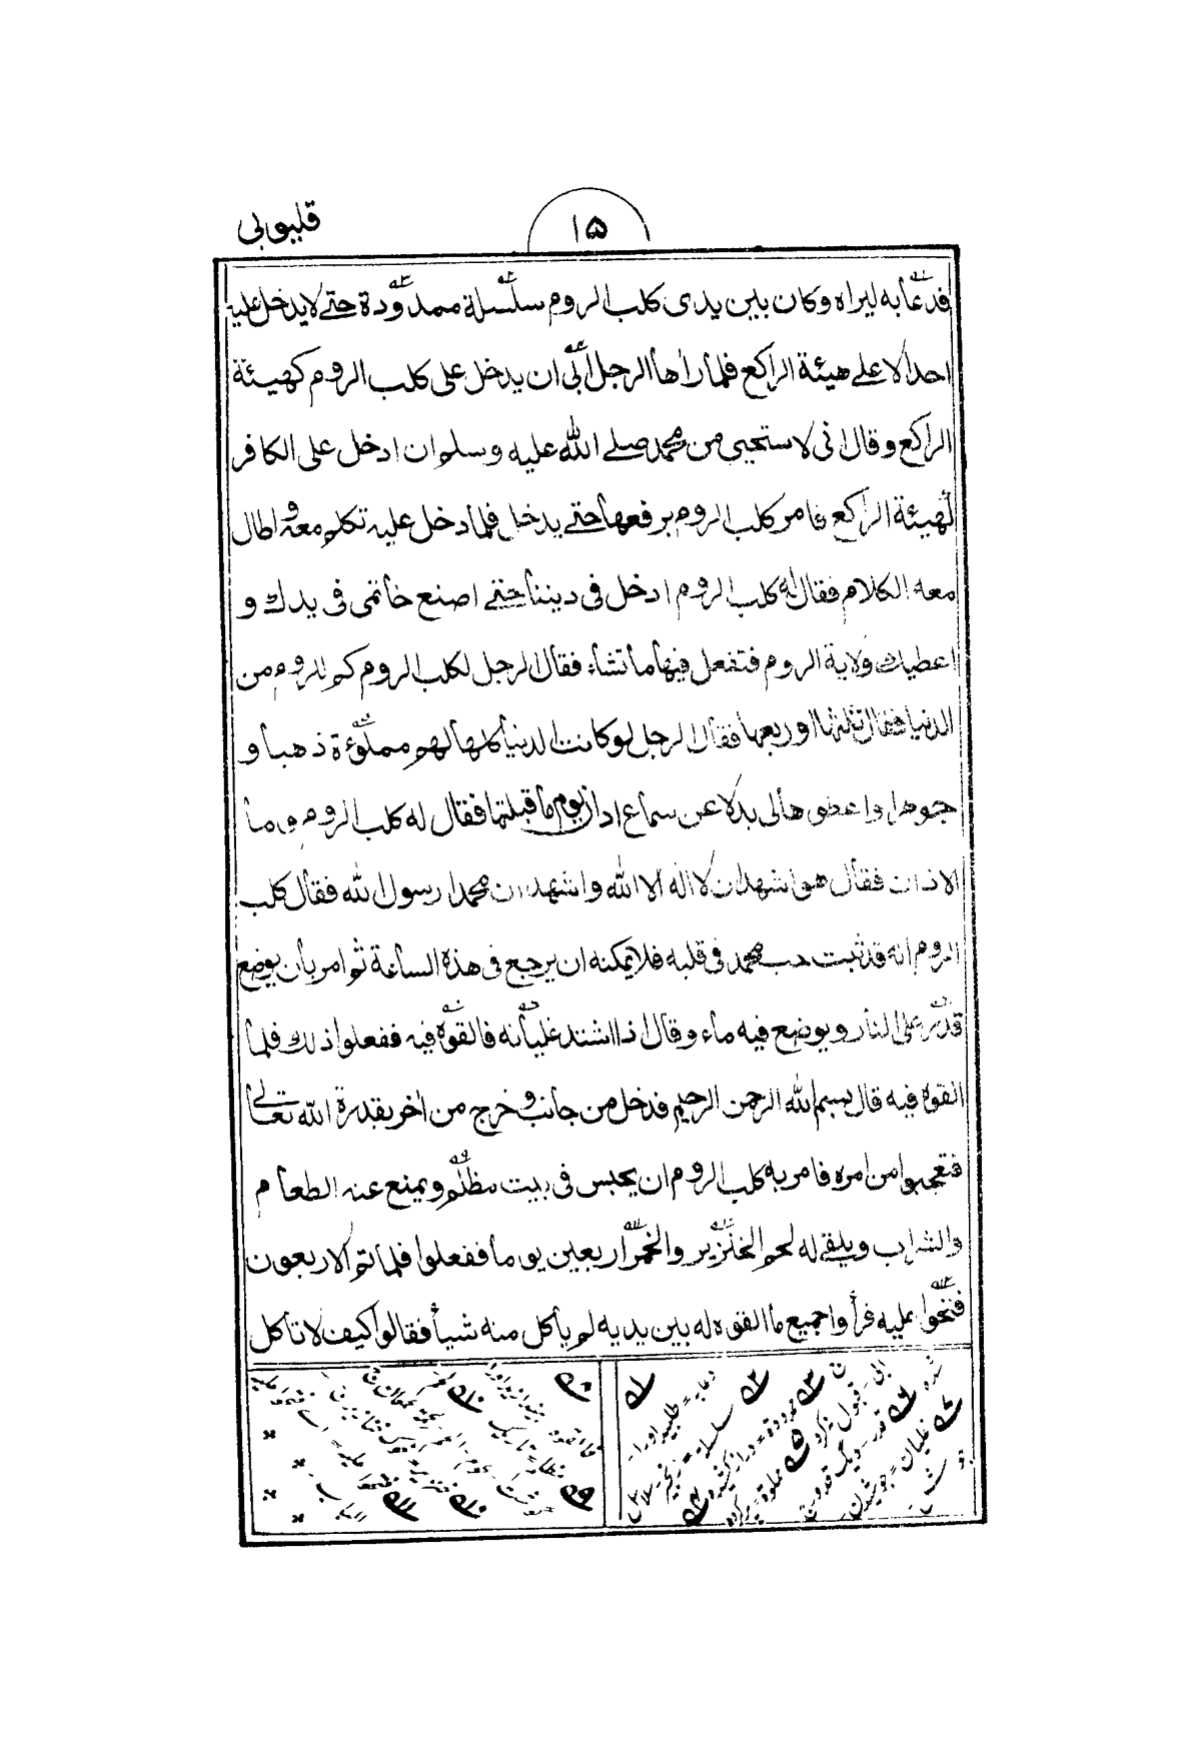 قليوبی
۱۵
فدعا به ليراه وكان بين يدی كلب الروم سلسلة ممدودة حتے لا يدخل عليه
احد الا علے هيئة الراكع فلما راها الرجل ابی ان يدخل علی كلب الروم كهيئة
الراكع وقال انی لا ستحيی من محمد صلے الله عليه وسلم ان ادخل علی الكافر
كهيئة الراكع فامر كلب الروم برفعها حتے يدخل فلما دخل عليه تكلم معه واطال
معه الكلام فقال له كلب الروم ادخل فی ديننا حتے اصنع خاتمی فی يدك و
اعطيك ولاية الروم فتفعل فيها ما تشاء فقال الرجل لكلب الروم كم للروم من
الدنيا فقال ثلثها او ربعها فقال الرجل لو كانت الدنيا كلها لهم مملوءة ذهبا و
جوهرا واعطوها لی بدلا عن سماع اذان يوم ما قبلتها فقال له كلب الروم وما
الاذان فقال هو اشهد ان لا اله الا الله واشهد ان محمدا رسول الله فقال كلب
الروم انه قد ثبت حب محمد فی قلبه فلا يمكنه ان يرجع فی هذه الساعة ثم امر بان يوضع
قدر علی النار ويوضع فيه ماء وقال اذا اشتد غليانه فالقوه فيه ففعلوا ذلك فلما
القوه فيه قال بسم الله الرحمن الرحيم فدخل من جانب وخرج من اخر بقدرة الله تعالے
فتعجبوا من امره فامر به كلب الروم ان يحبس فی بيت مظلم ويمنع عنه الطعام
والشراب ويلقے له لحم الخنزير والخمر اربعين يوما ففعلوا فلما تم الاربعون
فتحوا عليه فرأوا جميع ما القوه له بين يديه لم يأكل منه شيأ فقالوا كيف لا تأكل
دعا به = طلبيد او را
سلسلة = زنجير
ممدودة = دراز كشيده
قدر = ديگ
غليان = جوشيدن